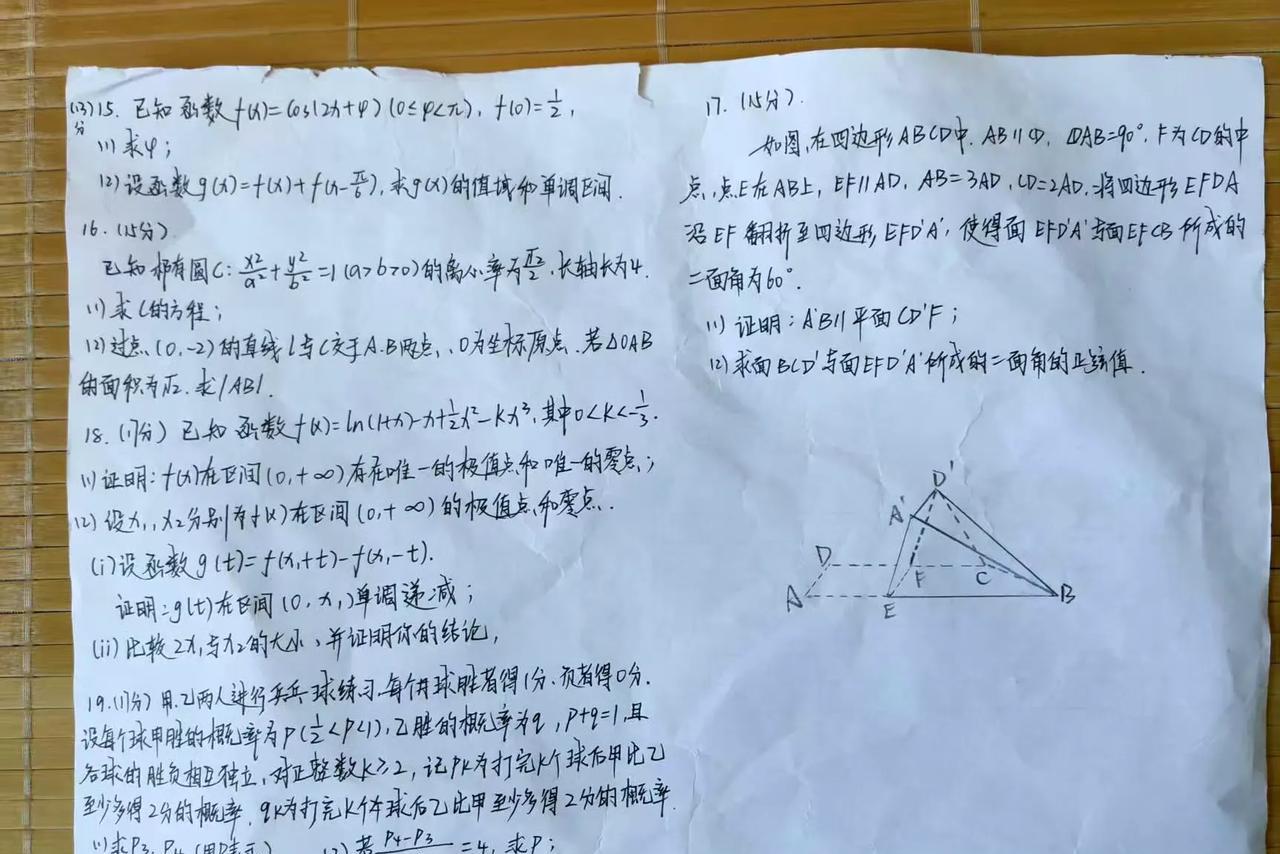 (13分)15. 已知函数f(x)=cos(2x+φ)(0≤φ<π), f(0)=1/2,
(1)求φ;
(2)设函数g(x)=f(x)+f(x-π/6),求g(x)的值域和单调区间.
16.(15分)
已知椭圆C: x²/a²+y²/b²=1(a>b>0)的离心率为√2/2,长轴长为4.
(1)求C的方程;
(2)过点(0,-2)的直线l与C交于A.B两点,O为坐标原点.若△OAB
的面积为√2.求|AB|.
18.(17分) 已知函数f(x)=ln(1+x)-x+1/2x²-kx³,其中0<k<1/3.
(1)证明:f(x)在区间(0,+∞)存在唯一的极值点和唯一的零点;
(2)设x₁,x₂分别为f(x)在区间(0,+∞)的极值点和零点.
(i)设函数g(t)=f(x₁+t)-f(x₁-t).
证明:g(t)在区间(0,x₁)单调递减;
(ii)比较2x₁与x₂的大小,并证明你的结论,
19.(17分)甲.乙两人进行乒乓球练习,每个球胜者得1分、负者得0分.
设每个球甲胜的概率为P(1/2<P<1),乙胜的概率为q,P+q=1,且
各球的胜负相互独立,对正整数k≥2,记Pk为打完k个球后甲比乙
至少多得2分的概率,qk为打完k个球后乙比甲至少多得2分的概率.
(1)求P3,P4(用P表示) (2)若P4-P3 =4,求P;
17.(15分).
如图,在四边形ABCD中,AB∥CD,∠DAB=90°,F为CD的中
点,点E在AB上,EF∥AD,AB=3AD,CD=2AD.将四边形EFDA
沿EF翻折至四边形EFD'A',使得面EFD'A'与面EFCB所成的
二面角为60°.
(1)证明:A'B∥平面CD'F;
(2)求面BCD'与面EFD'A'所成的二面角的正弦值.
D'
A'
D
F
C
A
E
B